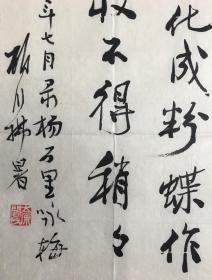 化成粉蝶作
收不得稍々
年七月录杨万里咏梅